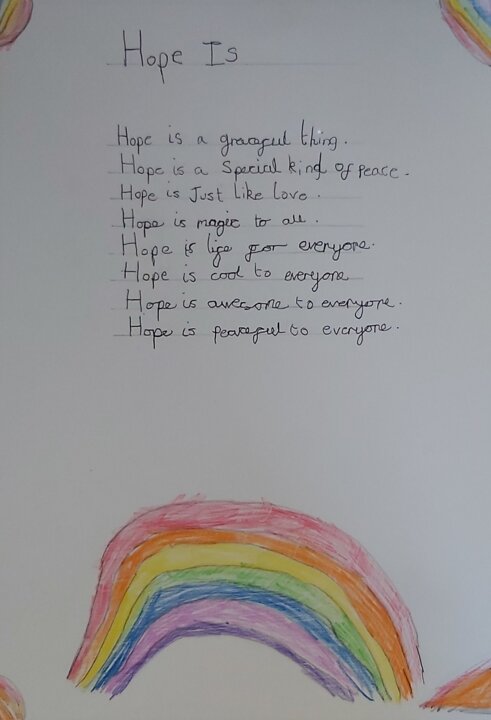 Hope Is
Hope is a graceful thing.
Hope is a Special kind of Peace.
Hope is Just like Love.
Hope is magic to all.
Hope is life for everyone.
Hope is cool to everyone
Hope is awesome to everyone.
Hope is peaceful to everyone.